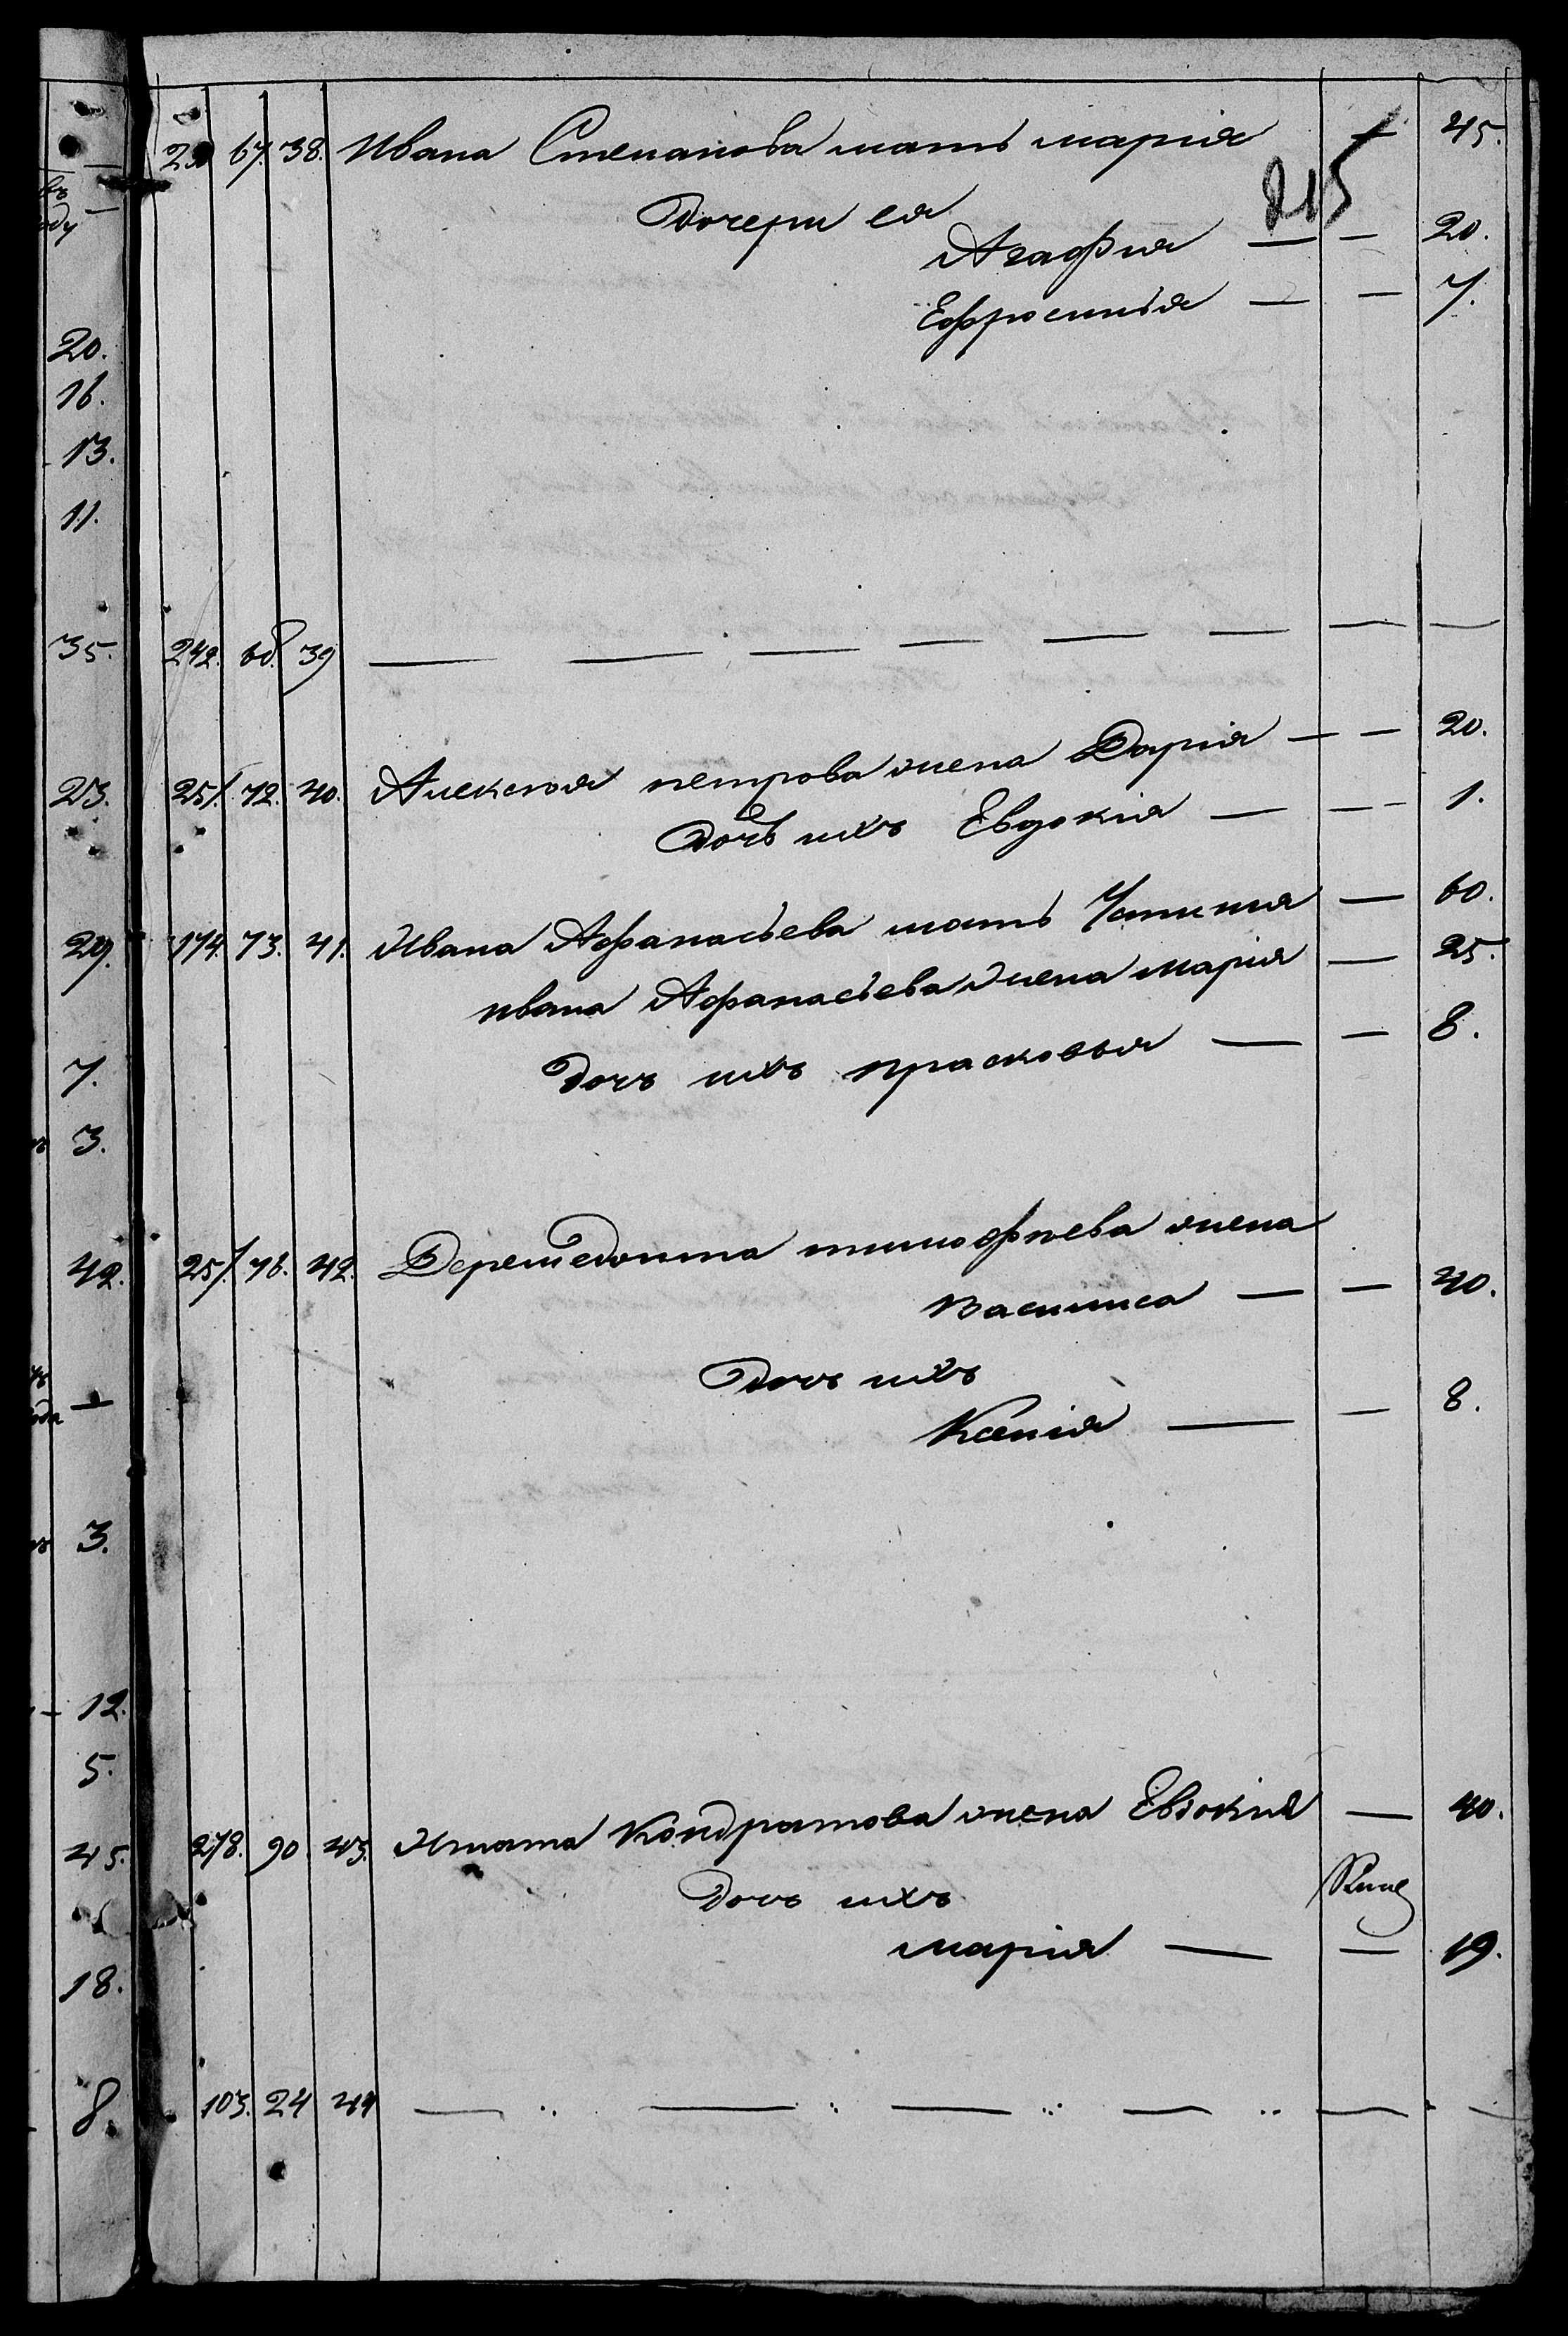 67. 38. Ивана Степанова мать марія — 45.
215
дочери ея
Агафия — — 20.
Ефросинья — — 7.
242. 68. 39 — — — — — — —
251. 72. 40. Алексея петрова жена Дарія — — 20.
дочь ихъ Евдокия — — 1.
174. 73. 41. Ивана Афанасьева мать Устиния — 60.
ивана Афанасьева жена Мария — 25.
дочь ихъ прасковья — — 8.
251. 76. 42. тимофеева жена
Василиса — — 40.
дочъ ихъ
Ксенія — — 8.
278. 90. 43. Игната Кондратова жена Евдокия — 40.
дочъ ихъ
мария — — 19.
103. 24 44 — — — — — —
20.
16.
13.
11.
35.
23.
29.
7.
3.
42.
3.
12.
5.
45.
18.
8.